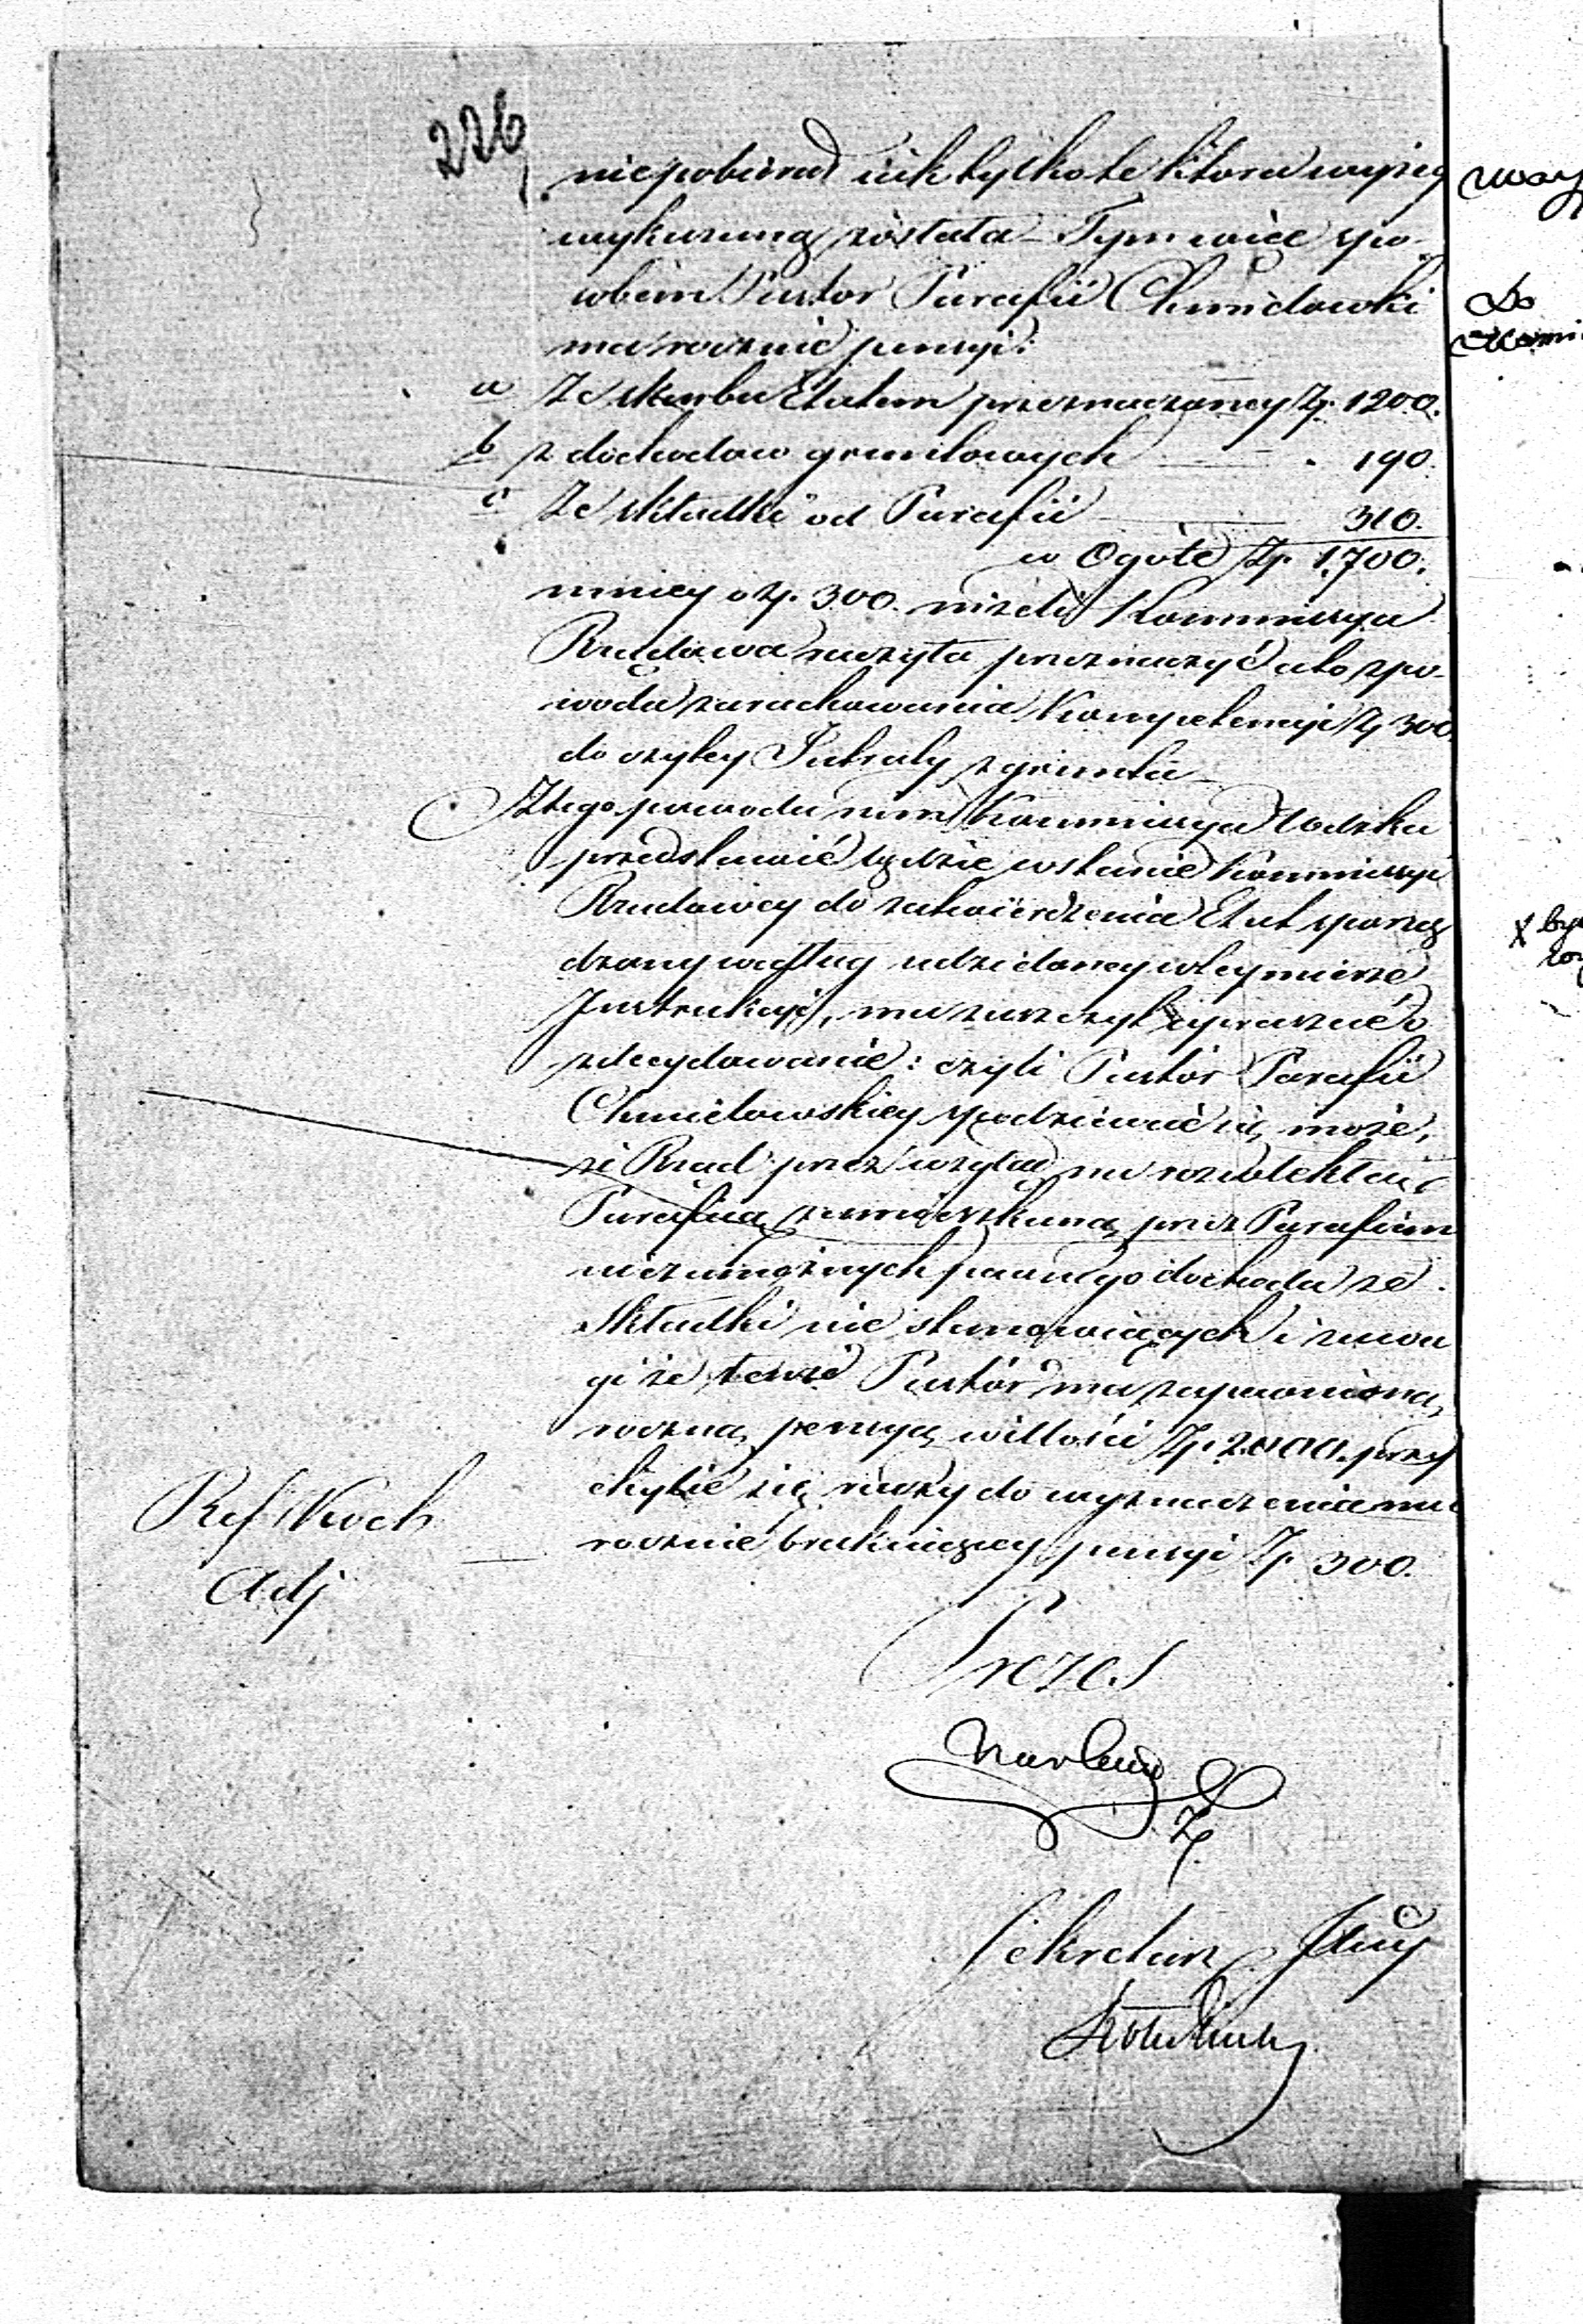 226
niepobierał jak tylko te która wyżey
wykazaną została – Tym więc spo-
sobem Pastor Parafii Chmielowski
ma rocznie pensyi:
a Ze skarbu Etatem przeznaczoney Zp. 1200.
b z dochodow gruntowych – – . 190.
c Ze składki od Parafii – 310.
w Ogóle Zp. 1,700.
mniey o Zp. 300. niżeli Kommissya
Rządowa raczyła przeznaczyć a to z po-
wodu zarachowania Kompetencyi Zp 300.
do czystey Intraty z gruntu –
Z tego powodu nim Kommissya Wdzka
przedstawić będzie w stanie Kommissyi
Rządowey do zatwierdzenia Etat sporzą
dzony według udzieloney w tey mierze
Instrukcyi, ma zaszczyt upraszać o
zdecydowanie: czyli Pastor Parafii
Chmielowskiey spodziewać się może,
że Rząd przez wzgląd na rozwlekłą
Parafią zamieszkaną przez Parafian
niezamożnych pewnego dochodu ze
składki nie stanowiących i z uwa
gi że tenże Pastór ma zapewnioną
roczną pensyą w ilości Zp. 2000. przy
chylić się raczy do wyznaczenia mu
rocznie brakuiącey pensyi Zp. 300.
Ref Koch
Adj
Prezes
Sekretarz Jlny